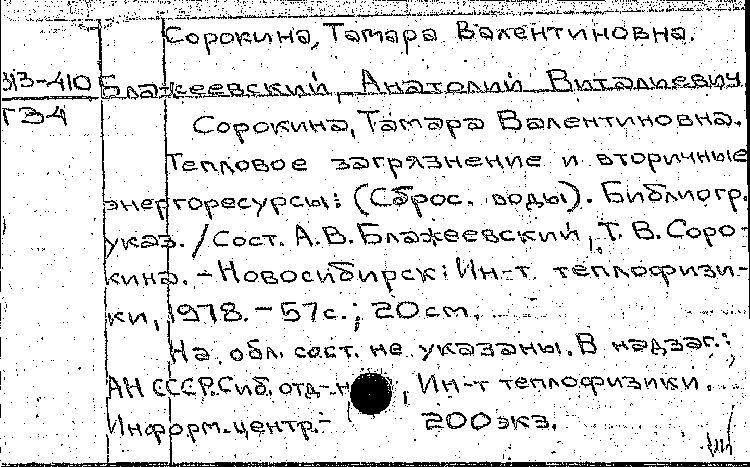 Сорокина, Тамара Валентиновна.
313-410 Блажеевский, Анатолий Виталиевич,
Г3-4
Сорокина, Тамара Валентиновна.
Тепловое загрязнение и вторичные
энергоресурсы: (Сброс. воды). Библиогр.
указ. / Сост. А.В. Блажеевский, Т. В. Соро-
кина. – Новосибирск: Ин-т. теплофизи-
ки, 1978. – 57с.; 20см.
На обл. сост. не указаны. В надзаг.:
АН СССР. Сиб. отд-н , Ин-т теплофизики.
Информ. центр. – 200экз.